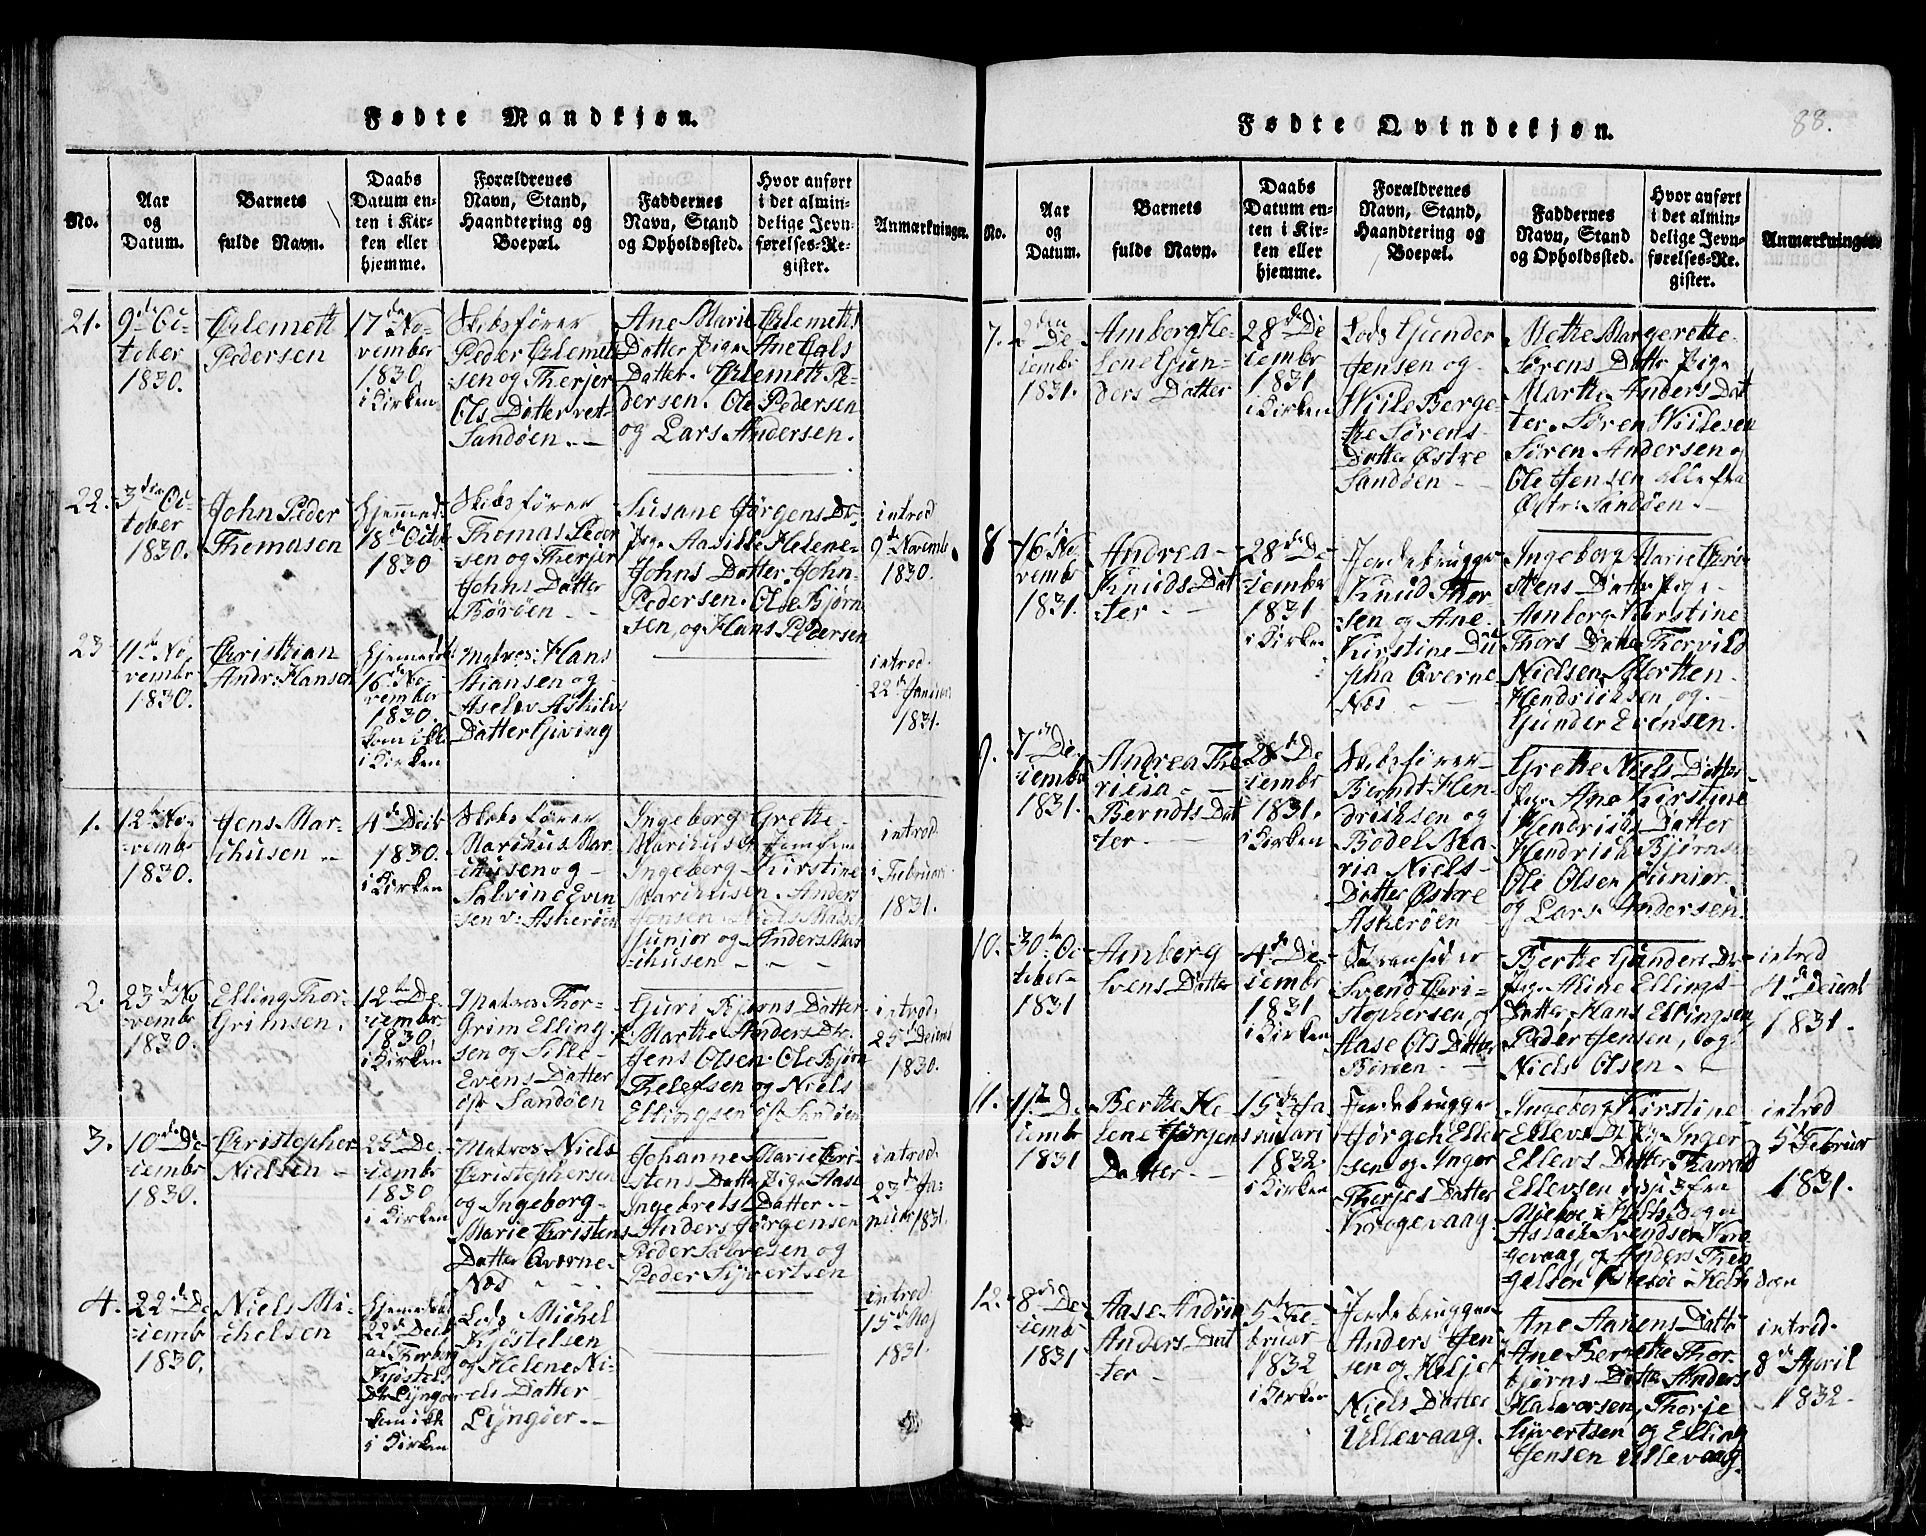 Fødte Mandkjøn.
No.
Aar
og
Datum.
Barnets
fulde Navn.
Daabs
Datum en-
ten i Kir-
ken eller
hjemme.
Forældrenes
Navn, Stand,
Haandtering og
Boepæl.
Faddernes
Navn, Stand
og Opholdssted.
Hvor anført
i det almin-
delige Jevn-
førelses-Re-
gister.
Anmærkninger.
21.
9de Oc-
tober
1830.
Ørlemett
Pedersen
17de No-
vember
1830
i Kirken
Skibsfører
Peder Ørlemett
sen og Therjer
Ols Datter
Sandøen
Ane Marie Ørlemetts
Datter Pige Ane Ols
Datter. Ørlemett Pe-
dersen. Ole Pedersen
og Lars Andersen.
22.
3den Oc-
tober
1830.
John Peder
Thomasen
1830
Skibsfører
Thomas Peder
sen og Therjer
Johns Datter
Børøen
Susane Jørgens
Pige Helene
Johns Datter. John
Pedersen. Ole Bjørn
sen, og Hans Pedersen
introd
9de Novemb
1830.
23
11te No
vembr
1830.
Christian
Andr: Hansen
16de No-
vember
1830.
kom ikke
i Kirken
Matros: Hans
Stiansen og
Datter Giving
introd.
22de Januar
1831.
1.
12te No-
vembr
1830.
Jens Mar-
chusen
4de
1830.
i Kirken
Skibsfører
Marchus Mar-
chusen og
Even
sen v: Askerøen
Ingeborg Grethe
Ingeborg Kirstine
Marchusen. Anders
Jensen Niels Madsen
junior og Anders Mar
chusen
introd.
Februar
1831.
2.
23de No
vembr
1830.
Elling Thor-
Grimsen.
12te De-
cembr
1830.
i Kirken
Matros Thor-
Grim Elling
sen og Sille
Evens Datter
øst Sandøen
Guri Bjørns Datter
Marthe Anders
Jens Olsen Ole Bjørn
Thelefsen og Niels
Ellingsen øst Sandøen
introd.
25de
1830.
3.
10de De-
cembr
1830.
Christopher
Nielsen
25de De-
cembr
1830
i Kirken
Matros Niels
Christophersen
og Ingeborg
Marie Christens
Datter
Næs
Johanne Marie Chri-
stens Datter Pige Aase
Ingebrets Datter
Anders Jørgensen
Peder Salvesen og
Peder Syvertsen
introd.
23de Ja-
nuar 1831.
4.
22de De
cembr
1830.
Niels Mi-
chelsen
22de
kom ikke
i Kirken
Lods Michel
Kjøstelsen
og Helene Ni-
els Datter
Lyngøer
introd
15de Maj
1831.
Fødte Qvindekjøn.
88.
No.
Aar
og
Datum.
Barnets
fulde Navn.
Daabs
Datum en-
ten i Kir-
ken eller
hjemme.
Forældrenes
Navn, Stand,
Haandtering og
Boepæl.
Faddernes
Navn, Stand
og Opholdssted.
Hvor anført
i det almin-
delige Jevn-
førelses-Re-
gister.
Anmærkninger.
7.
2den
De
cembr
1831.
Amborg He-
lene Gun-
ders Datter
28de De
cembr
1831
i Kirken
Lods Gunder
Jensen og
Berge-
the Sørens
Datter Østre
Sandøen
Methe Margerethe
Sørens Datter Pige
Marthe Anders Dat
ter. Søren
Søren Andersen og
Ole Jensen alle fra
Østr: Sandøen
8
16de No
vembr
1831.
Andrea
Knuds Dat
ter
28de De-
cembr
1831
i Kirken
Jordebrugger
Knud Thor-
sen og Ane
Kirstine
Næs
Ingeborg Marie Chri-
stens Datter Pige
Amborg Kirstine
Thors Datter Thorvild
Nielsen Morthen
Hendriksen og
Gunder Evensen.
9.
7de De-
cembr
1831.
Andrea The
Berndts Dat
ter
28de De
cembr
1831.
i Kirken
Skibsfører
Berndt Hen-
driksen og
Bodel Ma-
ria Niels
Datter Østre
Askerøen
Grethe Niels Datter
Pige Ane Kirstine
Hendrichs Datter
Hendrich Bjørns
Ole Olsen junior
og Lars Andersen.
10.
30te Oc-
tober
1831
Amborg
Svens Datter
4de De-
cembr
1831
i Kirken
Svend Chri-
stophersen, og
Aase Ols Datter
Børøen
Berthe Gunders
Pige Mine Ellings
Datter, Hans Ellingsen
Peder Jensen, og
Niels Olsen
introd
4de
1831.
11.
De
cembr
1831
Berthe He
lene Jørgens
Datter
15de Ja
nuari
1832
i Kirken
Jordebrugger
Jørgen Ellev
sen og Inger
Therjes Datter
Krogevaag
Ingeborg Kirstine
Ellevs Pige Inger
Ellevs Datter
Ellevsen
Aslach Svendsen Kro
gevaag og Anders
introd
5te Februar
1831.
12.
8de De-
cembr
1831
Aase Andrin
Anders Dat
ter
5te Fe-
bruar
1832
i Kirken
Jordebrugger
Anders Jen
sen og Helje
Niels Datter
Ullevaag.
Ane Aanens Datter
Ane Berrethe Thor-
bjørns Datter Anders
Halvorsen, Thorje
Syvertsen og Elling
Jensen Ullevaag.
introd.
8de April
1832